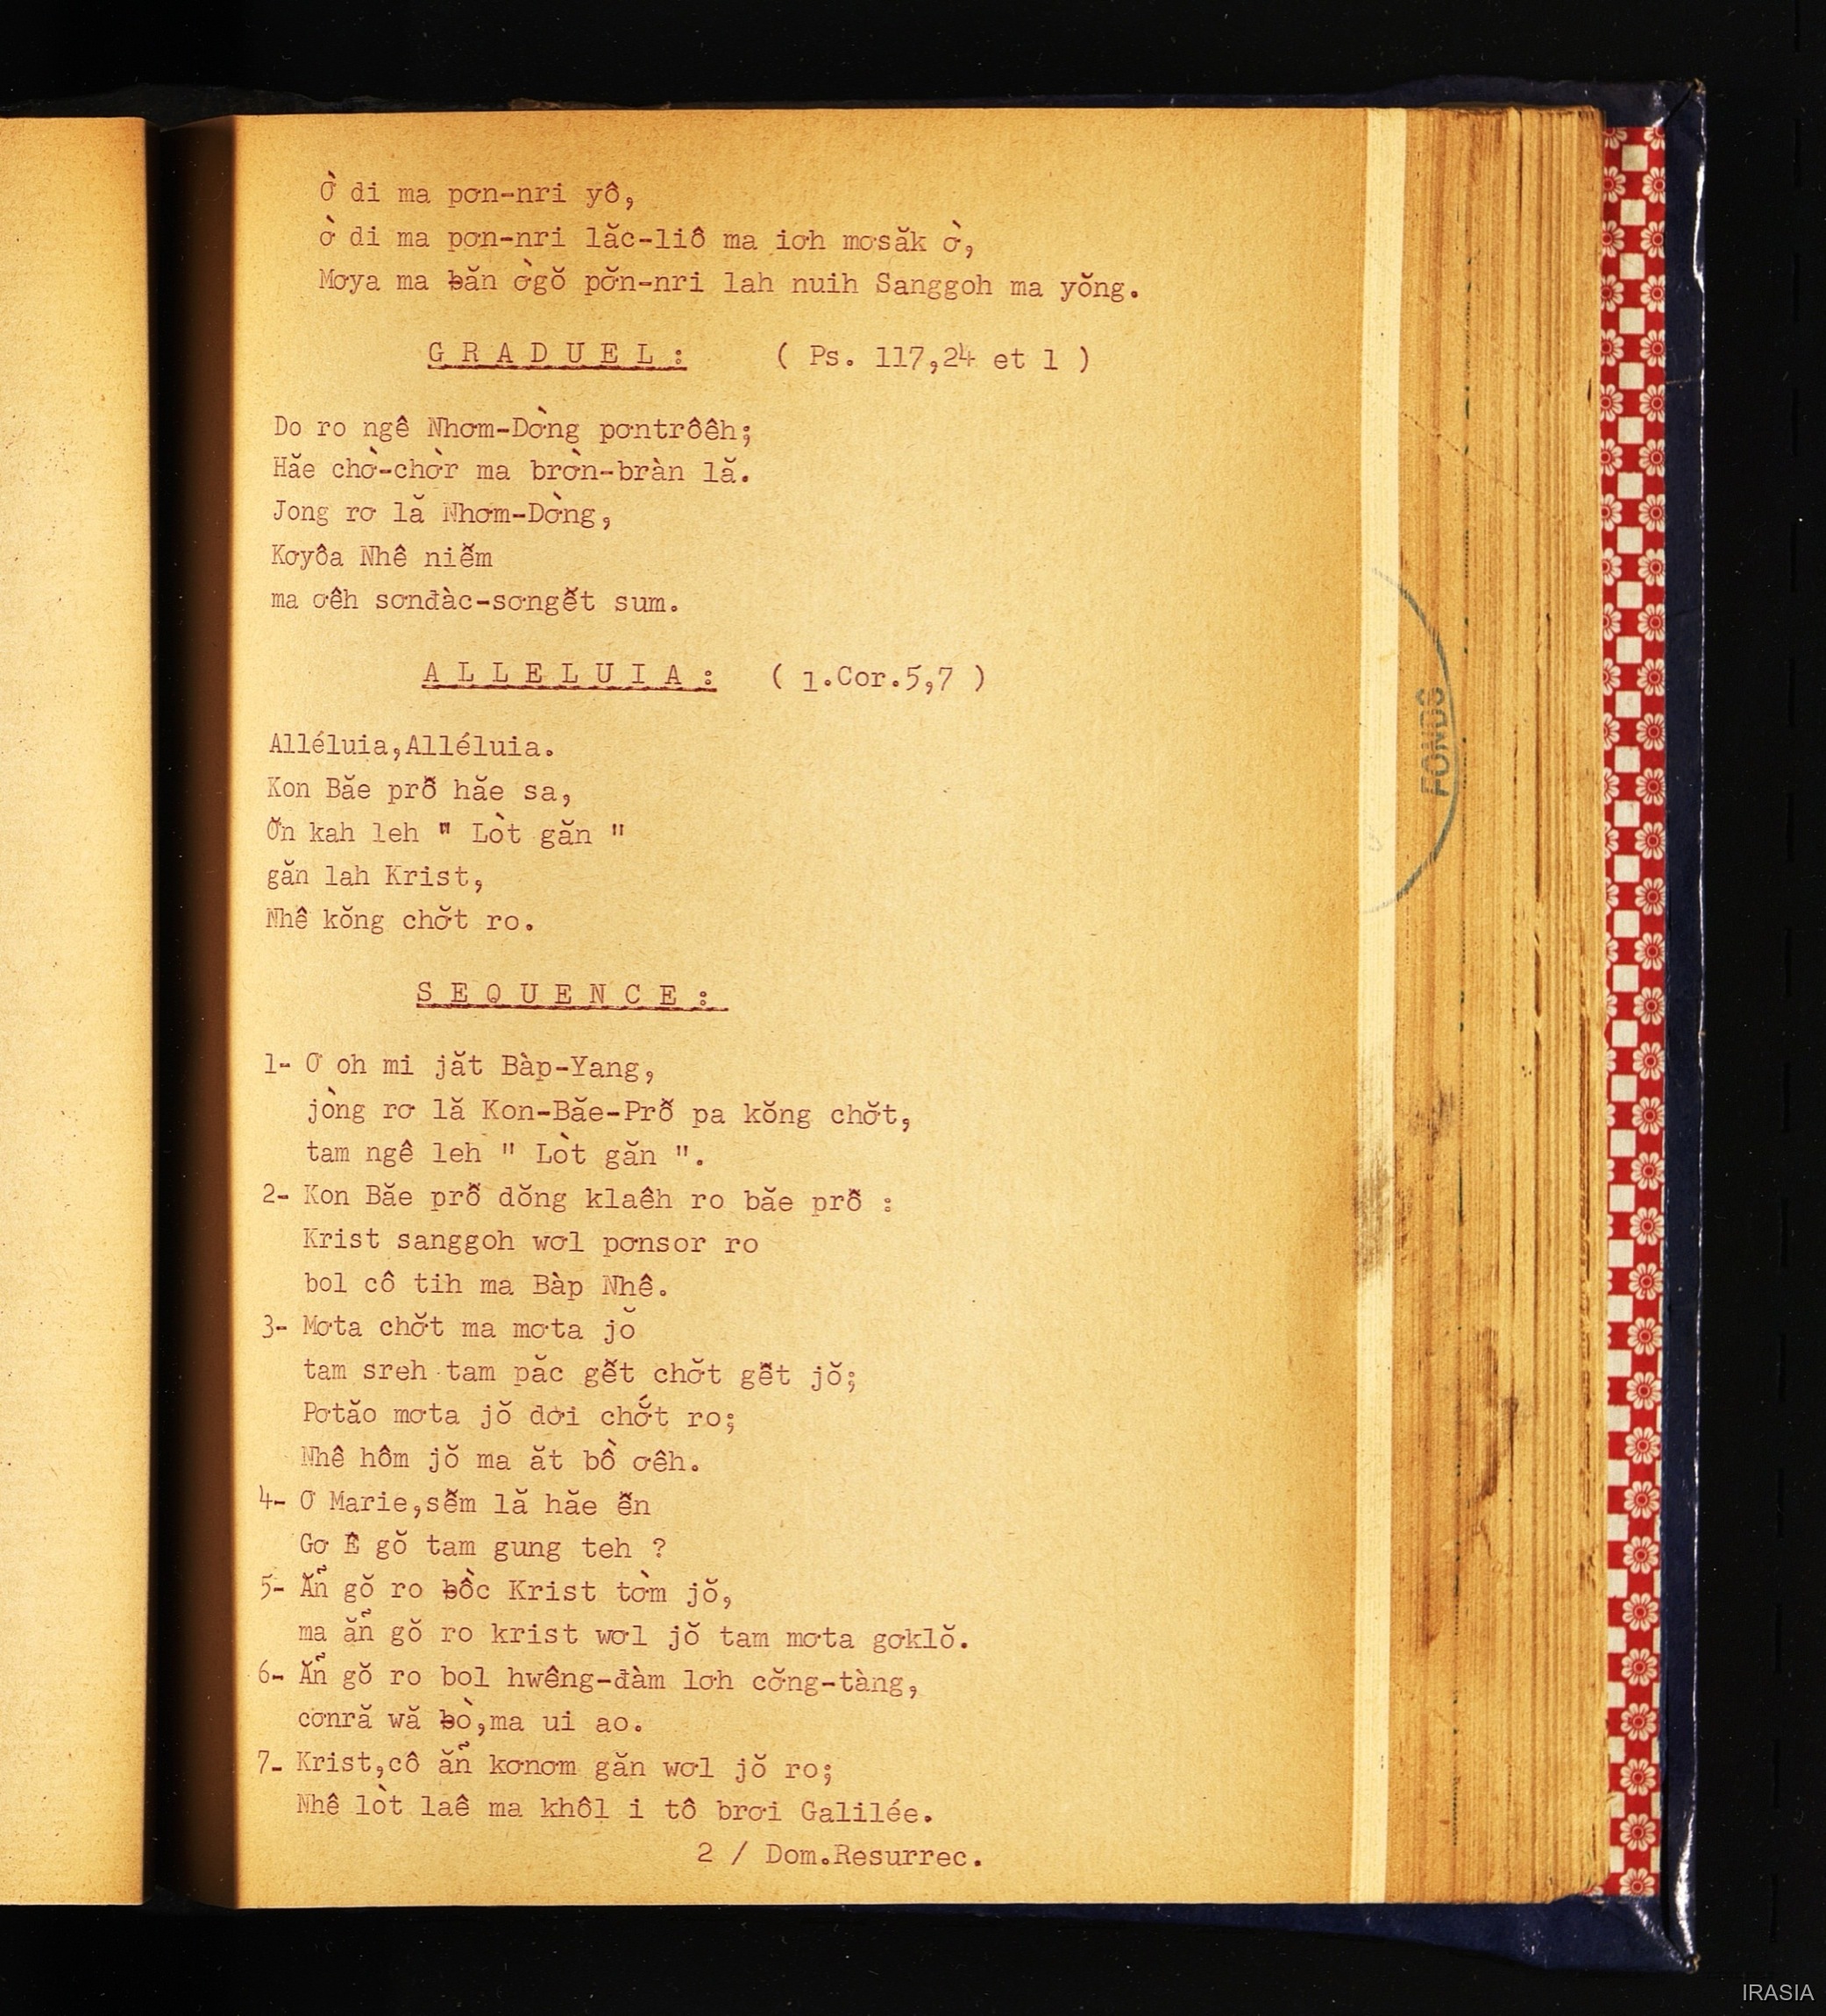 Ờ di ma pơn-nri yô,
ờ di ma pơn-nri lăc-liô ma iơh mơsăk ờ,
Mơya ma ƀăn ờgŏ pơ̆n-nri lah nuih Sanggoh ma yŏng.
G R A D U E L : ( Ps. 117,24 et 1 )
Do ro ngê Nhơm-Dờng pơntrôêh;
Hăe chờ-chờr ma brờn-bràn lă.
Jong rơ lă Nhơm-Dờng,
Kơyôa Nhê niê̆m
ma ơêh sơnđàc-sơngê̆t sum.
A L L E L U I A : ( 1.Cor.5,7 )
Alléluia,Alléluia.
Kon Băe prô̆ hăe sa,
Ơ̆n kah leh " Lòt găn "
găn lah Krist,
Nhê kŏng chơ̆t ro.
S E Q U E N C E :
1- Ơ oh mi jăt Bàp-Yang,
jòng rơ lă Kon-Băe-Prô̆ pa kŏng chơ̆t,
tam ngê leh " Lòt găn ".
2- Kon Băe prô̆ dŏng klaêh ro băe prô̆ :
Krist sanggoh wơl pơnsor ro
bol cô tih ma Bàp Nhê.
3- Mơta chơ̆t ma mơta jŏ
tam sreh tam păc gê̆t chơ̆t gê̆t jŏ;
Pơtăo mơta jŏ đơi chơ̆t ro;
Nhê hôm jŏ ma ăt bồ ơêh.
4- Ơ Marie,sê̆m lă hăe ê̆n
Gơ Ê gŏ tam gung teh ?
5- Ăñ gŏ ro ƀồc Krist tờm jŏ,
ma ăñ gŏ ro krist wơl jŏ tam mơta gơklŏ.
6- Ăñ gŏ ro bol hwêng-đàm lơh cơ̆ng-tàng,
cơnră wă ƀò,ma ui ao.
7- Krist,cô ăñ kơnơm găn wơl jŏ ro;
Nhê lòt laê ma khôl i tô brơi Galilée.
2 / Dom.Resurrec.
FONDS
IRASIA